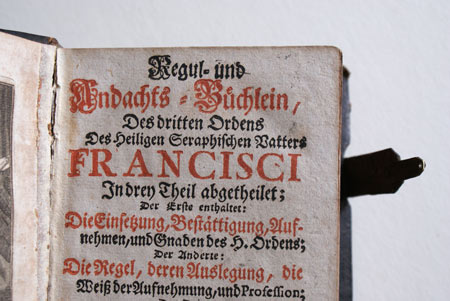 Regul- und
Andachts-Büchlein,
Des dritten Ordens
Des Heiligen Seraphischen Vatters
FRANCISCI
In drey Theil abgetheilet;
Der Erste enthaltet:
Die Einsetzung, Bestättigung, Auf-
nehmen, und Gnaden des H. Ordens;
Der Anderte:
Die Regel, deren Auslegung, die
Weiß der Aufnehmung, und Profession;